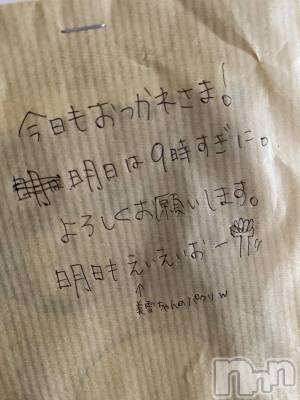 今日もおつかれさま!
明日は9時すぎに。
よろしくお願いします。
明日もえいえいおー
↑
美雪ちゃんのパクリw